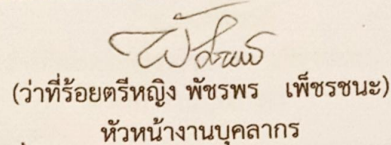 (ว่าที่ร้อยตรีหญิง พัชรพร เพ็ชรชนะ)
หัวหน้างานบุคลากร